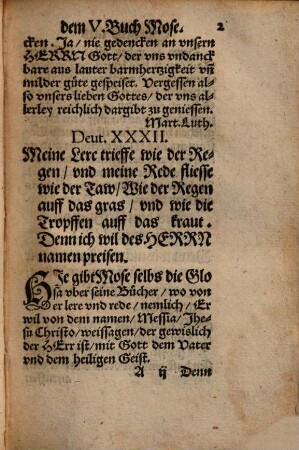 dem V. Buch Mose. 2
cken. Ja / nie gedencken an vnsern
HERRN Gott / der vns vndanck
bare aus lauter barmhertzigkeit vñ
milder güte gespeiset. Vergessen al-
so vnsers lieben Gottes / der vns al-
lerley reichlich dargibt zu geniessen.
Mart. Luth.
Deut. XXXII.
Meine Lere trieffe wie der Re-
gen / vnd meine Rede fliesse
wie der Taw / Wie der Regen
auff das gras / vnd wie die
Tropffen auff das kraut.
Denn ich wil des HERRN
namen preisen.
HIe gibt Mose selbs die Glo
sa vber seine Bücher / wo von
er lere vnd rede / nemlich / Er
wil von dem namen / Messia / Jhe-
su Christo / weissagen / der gewislich
der HErr ist / mit Gott dem Vater
vnd dem heiligen Geist.
A ij Denn